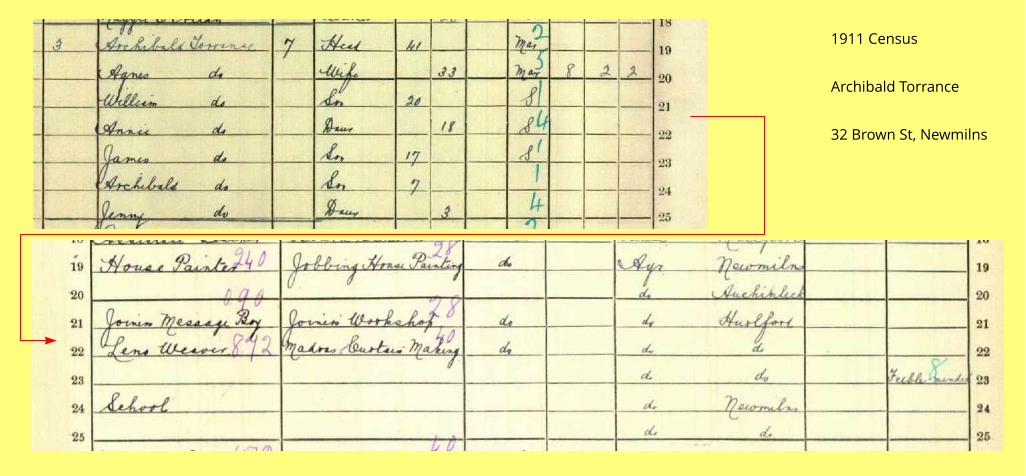 18
1911 Census
3 Archibald Torrance 7 Head 41 Mar 2 19
Archibald Torrance
Agnes do Wife 33 Mar 5 8 2 2 20
William do Son 20 S 1 21
32 Brown St, Newmilns
Annie do Daur 18 S 4 22
James do Son 17 S 1 23
Archibald do Son 7 1 24
Jenny do Daur 3 4 25
18
19 House Painter 240 Jobbing House Painting 28 do Ayr Newmilns 19
20 090 do Auchinleck 20
21 Joiners Message Boy Joiners Workshop 28 do do Hurlford 21
22 Leno Weaver 892 Madras Curtain Making 40 do do do 22
23 do do Feeble minded 8 23
24 School do Newmilns 24
25 do do 25
40